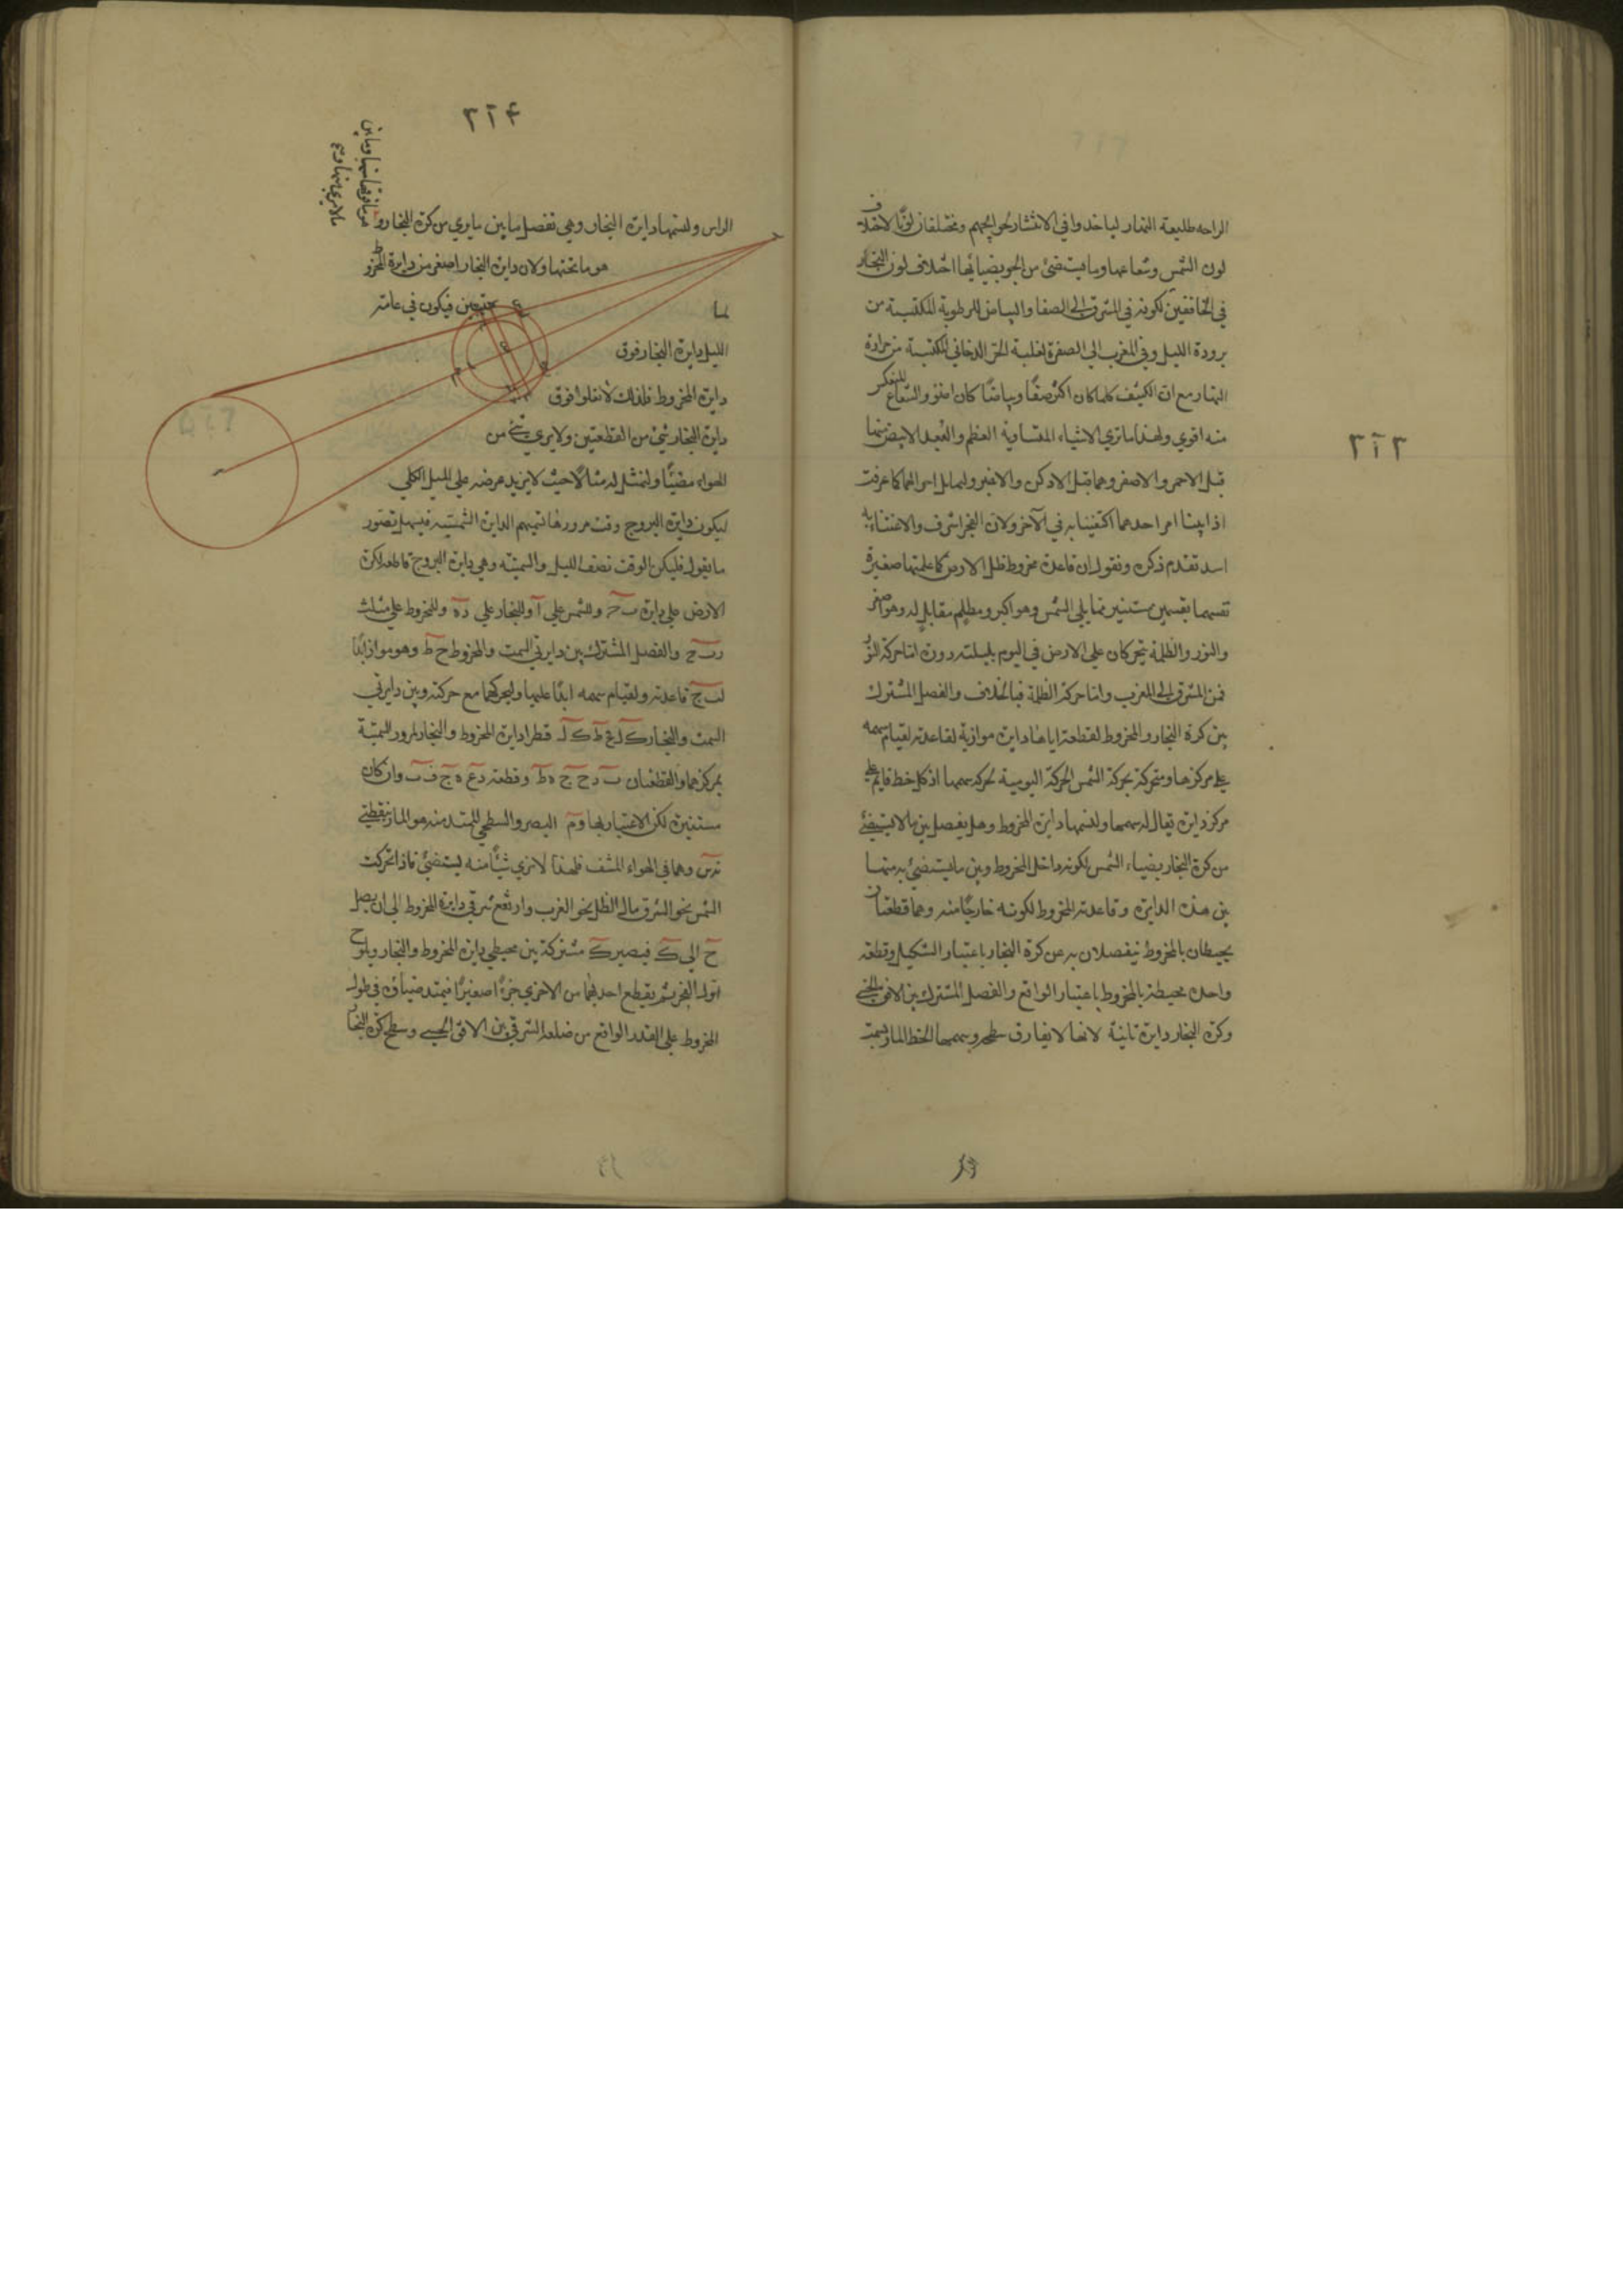 ٣٢٣
الراحه طليعة النهار لياخذوا في الانتشار نحو الجهم ومختلفان لونًا لاختلاف
لون الشمس وشعاعها وما يستضئ من الجو بضيائها اختلاف لون البخار
في الخافقين لكونه في المشرق الى الصفا والبياض للرطوبة المكتسبة من
برودة الليل وفي المغرب الي الصفرة لغلبة الجزء الدخاني المكتسبة من حرارة
النهار مع ان الكثيف كلما كان اكثر صفًا وبياضًا كان والشعاع المنعكس
منه اقوي ولهذا ما تري الاشياء المتساوية العظم والبعد الابيض منها
قبل الاحمر والاصفر وهما قبل الادكن والاغبر ولتماثل امرالهما كما عرفت
اذا بينا امر احدهما اكتفينا به في الآخر ولان الفجر اشرف والاعتناء به
اسد تقدم ذكره ونقول ان قاعدة مخروط ظل الارض كما علمتها صغيرة
تقسيمها بقسمين مستنير مما يلي الشمس وهو اكبر ومظلم مقابل له وهو اصغر
والنور والظلمة يتحركان علي الارض في اليوم بليلته دورة اما حركة النور
فمن المشرق الى المغرب واما حركة الظلمة فبالخلاف والفصل المشترك
بين كرة البخار والمخروط لقطعه اياها دايرة موازية لقاعدته لقيام سهمه
علي مركزها ومتحركة بحركة الشمس الحركة اليومية لحركة سهمها اذ كل خط قايم علي
مركز دايرة يقال له سهمها ولنسمها دايرة المخروط وهل يفصل بين ما لا يستضئ
من كرة البخار بضياء الشمس لكونه داخل المخروط وبين ما يستضئ به منها
بين هذه الدايرة وقاعدة المخروط لكونه خارجًا منه وهما قطعتان
يحيطان بالمخروط ينفصلان به عن كرة البخار باعتبار التشكيل وقطعة
واحدة محيطة بالمخروط باعتبار الواقع والفصل المشترك بين الافق الحسي
وكرة البخار دايرة ثابتة لانها لا يفارق سطحه وسهمها الخط المار بسمت
٣٢٤
الراس ولنسمها دايرة البخار وهي تفصل ما بين ما يري من كرة البخار و
هو ما فوقها منها وما بين
ما لا يري منها و
هو ما تحتها ولان دايرة البخار اصغر من دايرة المخروط
لما فيكون في عامة
الليل دايرة البخار فوق
دايرة المخروط فلذلك لا تعلوا فوق
دايرة البخار شئ من القطعتين ولا يري شئ من
الهواء مضيئًا ولنمثل له مثالًا حيث لا يزيد عرضه علي الميل الكلي
ليكون دايرة البروج وقت مرورها بهم الدايرة السمتية فيسهل تصور
ما يقول فليكن الوقت نصف الليل والسمتية وهي دايرة البروج قاطعة لكرة
الارض علي دايرة ب ح وللشمس علي آ وللبخار علي د ه وللمخروط علي مثلث
ر ب ح والفصل المشترك بين دايرتي السمت والمخروط ح ط وهو مواز ابدًا
لب ح قاعدته ولقيام سهمه ابدًا عليها ولتحركهما مع حركته وبين دايرتي
السمت والبخار ك ل ح ط ك ل قطرا دايرة المخروط والبخار لمرور السمتية
بمركزهما والقطعتان ب د ح ح ه ط وقطعة د ع ه ح ف ب وان كان
مستنيرة لكن الاعتبار بها وم البصر والسطحي الممتد منه هو المار بنقطتي
ن س وهما في الهواء المشف فلهذا لا نري شيئًا منه يستضئ فاذا تحركت
الشمس نحو الشرق مال الظل نحو الغرب وارتفع شرقي دايرة المخروط الى ان يصل
ح الي ك فيصير ك مشتركة بين محيطي دايرة المخروط والبخار ويلوح
اول الفجر ثم يقطع احديهما من الاخري جزءًا صغيرًا فيمتد ضياؤه في طول
المخروط علي القدر الواقع من ضلعه الشرقي بين الافق الحسي وسطح كرة البخار